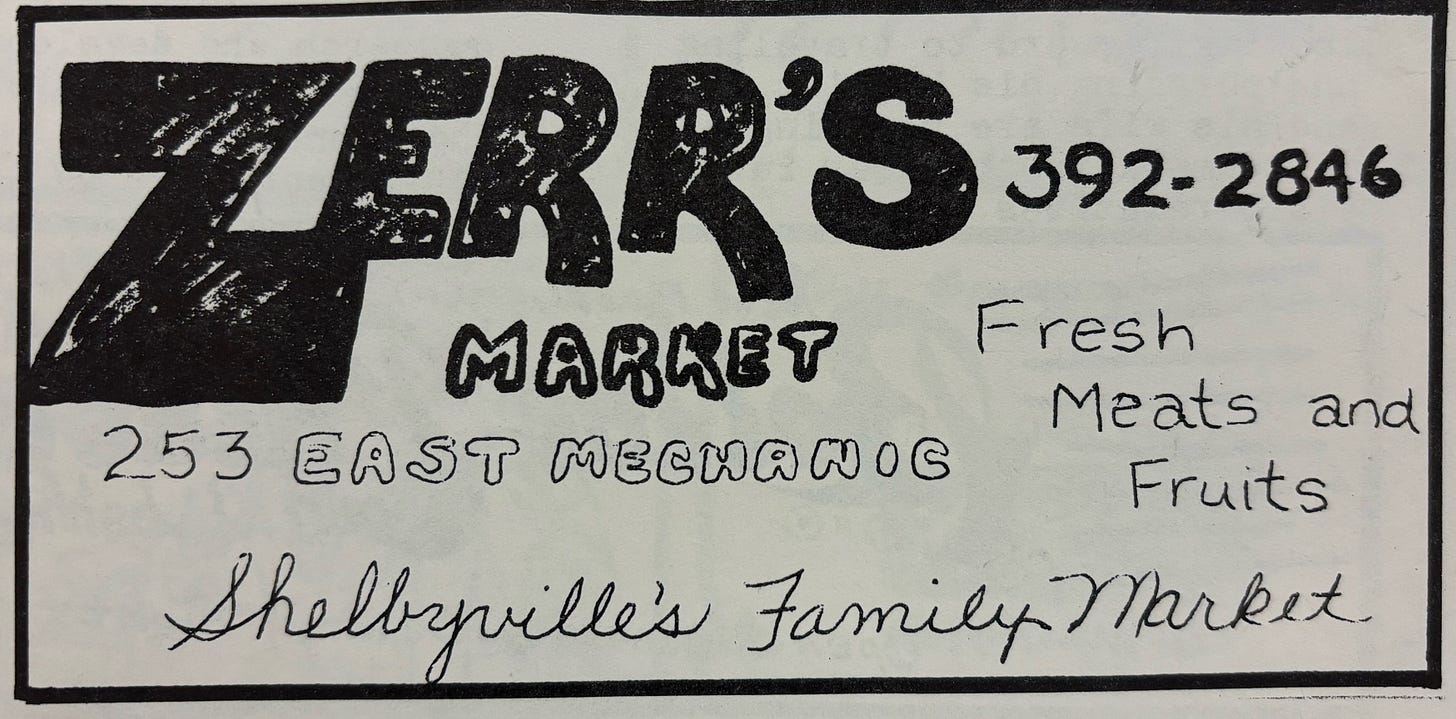 ZERR'S 392-2846
MARKET
Fresh
Meats and
Fruits
253 EAST MECHANIC
Shelbyville's Family Market